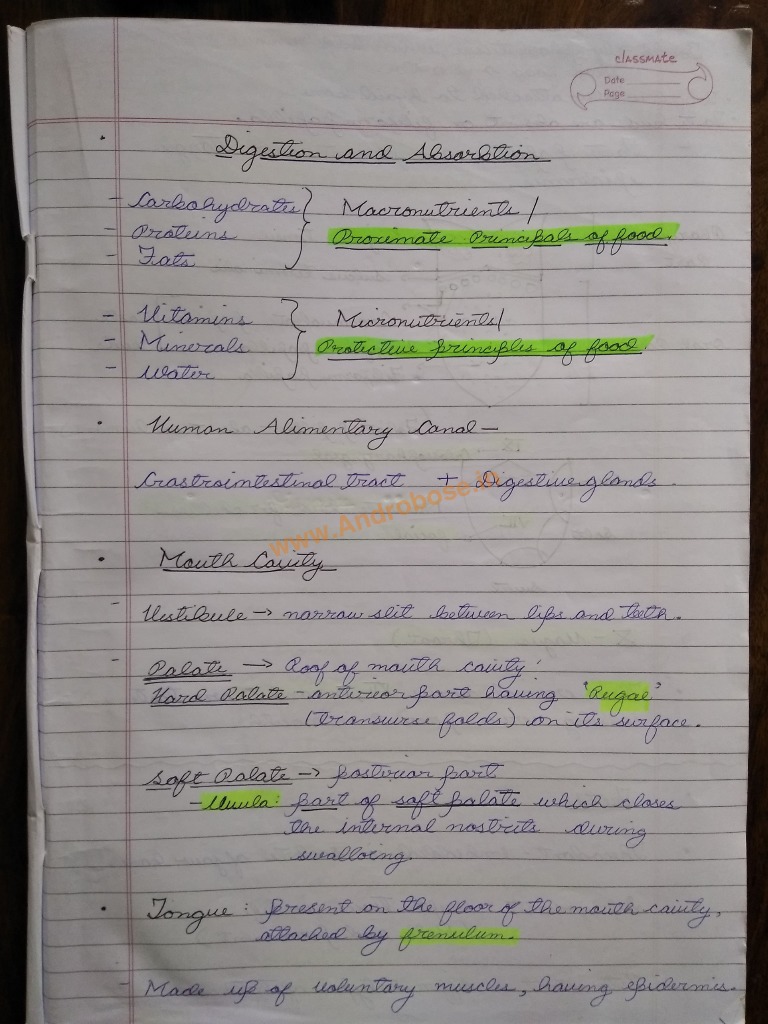 classmate
Date
Page
Digestion and Absorbtion
- Carbohydrates } Macronutrients /
- Proteins Proximate Principals of food.
- Fats
- Vitamins } Micronutrients/
- Minerals Protective principles of food.
- Water
• Human Alimentary Canal –
Gastrointestinal tract + Digestive glands.
www.Androbose.in
• Mouth Cavity
- Vestibule → narrow slit between lips and teeth.
- Palate → Roof of mouth cavity.
Hard Palate - anterior part having "Rugae"
(transverse folds) on its surface.
Soft Palate → posterior part
- Uvula: part of soft palate which closes
the internal nostrils during
swalloing.
• Tongue: present on the floor of the mouth cavity,
attached by frenulum.
- Made up of voluntary muscles, having epidermis.